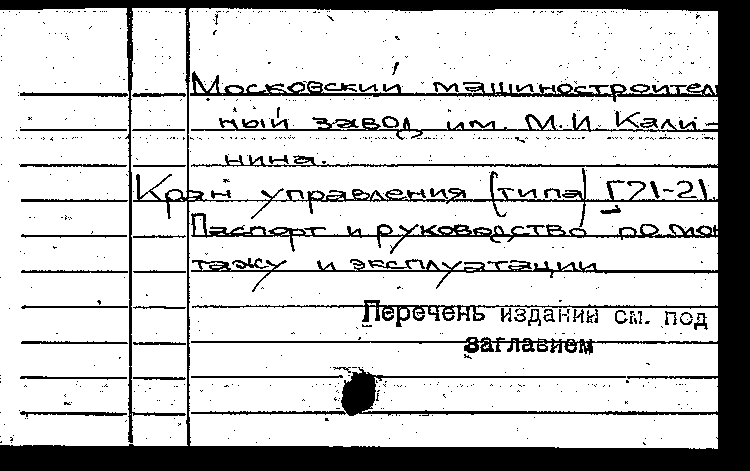 Московский машиностроитель
ный завод им. М.И. Кали-
нина.
Кран управления (типа) Г71-21.
Паспорт и руководство по мон
тажу и эксплуатации
Перечень изданий см. под
заглавием